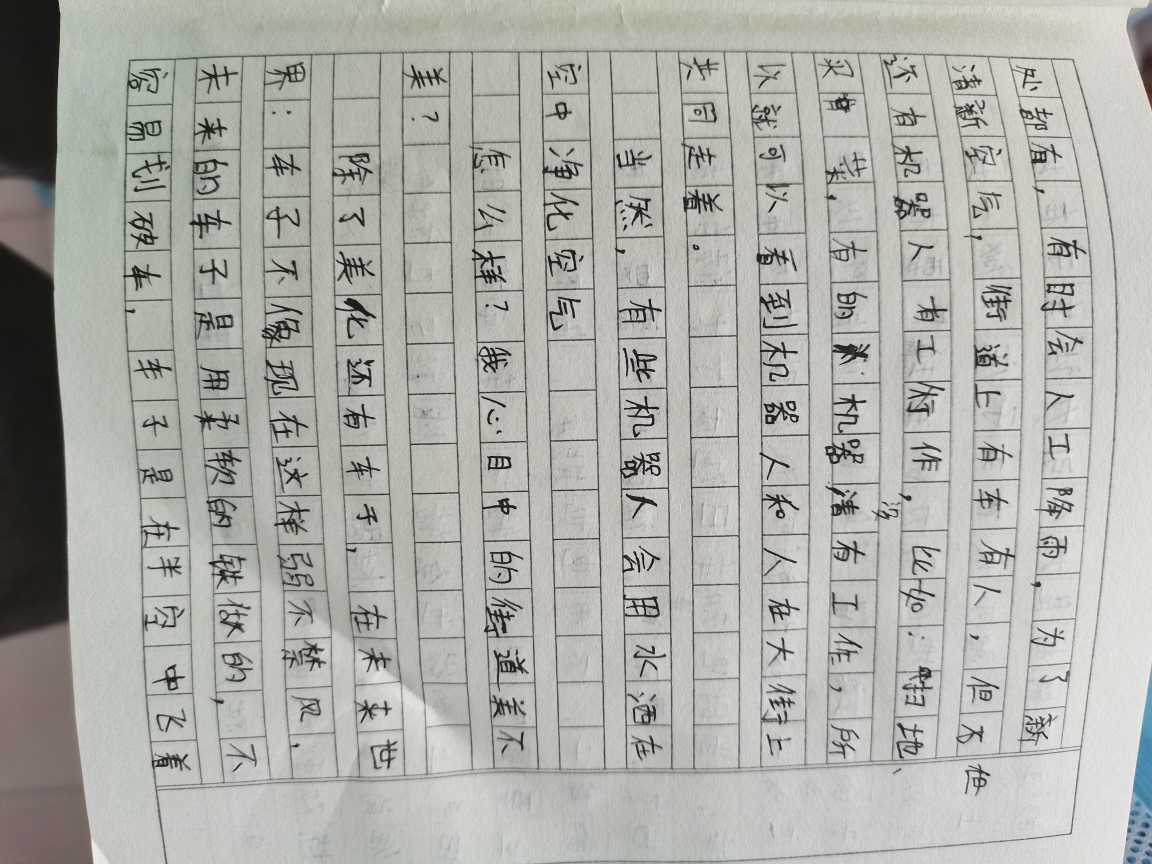 处都有，有时会人工降雨，为了新
清新空气，街道上有车有人，但
还有机器人有工行作，比如：扫地、
买菜，有的机器有工作，所
以就可以看到机器人和人在大街上
共同走着。
当然，有些机器人会用水洒在
空中净化空气
怎么样？我心目中的街道美不
美？
除了美化还有车子，在未来世
界：车子不像现在这样弱不禁风，
未来的车子是用柔软的铁做的，不
容易划破车，车子是在半空中飞着